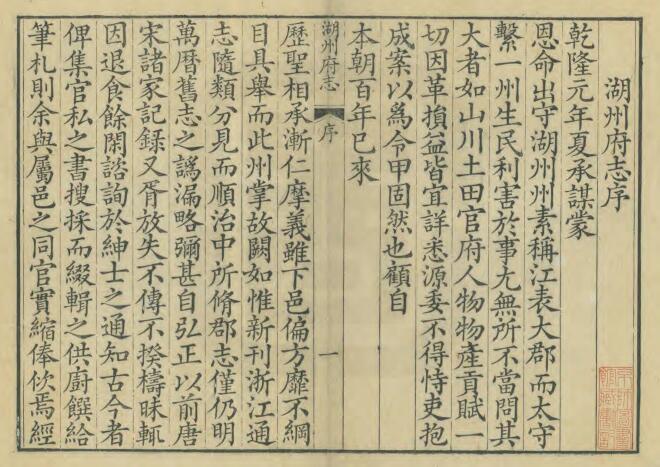 湖州府志序
乾隆元年夏承謀蒙
恩命出守湖州州素稱江表大郡而太守
繫一州生民利害於事尤無所不當問其
大者如山川土田官府人物物產貢賦一
切因革損益皆宜詳悉源委不得恃吏抱
成案以為令甲固然也顧自
本朝百年已來
湖州府志 序 一
歷聖相承漸仁摩義雖下邑偏方靡不綱
目具舉而此州掌故闕如惟新刊浙江通
志隨類分見而順治中所脩郡志僅仍明
萬曆舊志之譌漏略彌甚自弘正以前唐
宋諸家記録又胥放失不傳不揆檮昧輒
因退食餘閒諮詢於紳士之通知古今者
俾集官私之書搜採而綴輯之供廚饌給
筆札則余與屬邑之同官實縮俸佽焉經